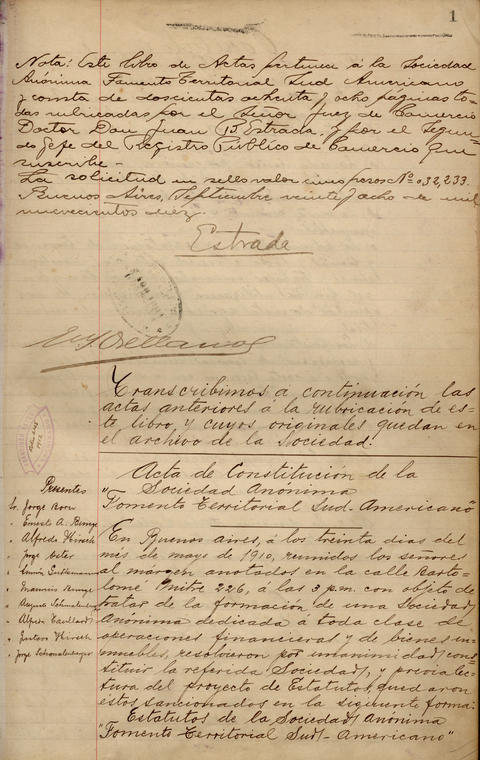 1
Nota: Este libro de Actas pertenece á la Sociedad
Anónima Fomento Territorial Sud Americano
y consta de doscientas ochenta y ocho páginas to-
das rubricadas por el Señor Juez de Comercio
Doctor Don Juan B. Estrada, y por el Segun-
do Gefe del Registro Público de Comercio que
suscribe.-
La solicitud en sellos valor cinco pesos Nº 032,233.
Buenos Aires, Septiembre veinte y ocho de mil
nuevecientos diez.
Estrada
Transcribimos a continuación las
actas anteriores á la rubricación de es-
te libro, y cuyos originales quedan en
el archivo de la Sociedad:
Acta de Constitución de la
Sociedad Anónima
"Fomento Territorial Sud-Americano"
Presentes
Sr. Jorge Born
" Ernesto A. Bunge
" Alfredo Hirsch
" Jorge Oster
" Mauricio Bunge
" Alfredo
" Gustavo Hirsch
" Jorge
En Buenos Aires, á los treinta dias del
mes de mayo de 1910, reunidos los señores
al margen anotados en la calle Barto-
lomé Mitre 226, á las 3 p.m. con objeto de
tratar de la formacion de una Sociedad
Anónima dedicada á toda clase de
operaciones financieras y de bienes in-
muebles, resolvieron por unanimidad cons-
tituir la referida Sociedad, y previa lec-
tura del proyecto de Estatutos, quedaron
estos sancionados en la siguiente forma:
Estatutos de la Sociedad Anónima
"Fomento Territorial Sud-Americano"